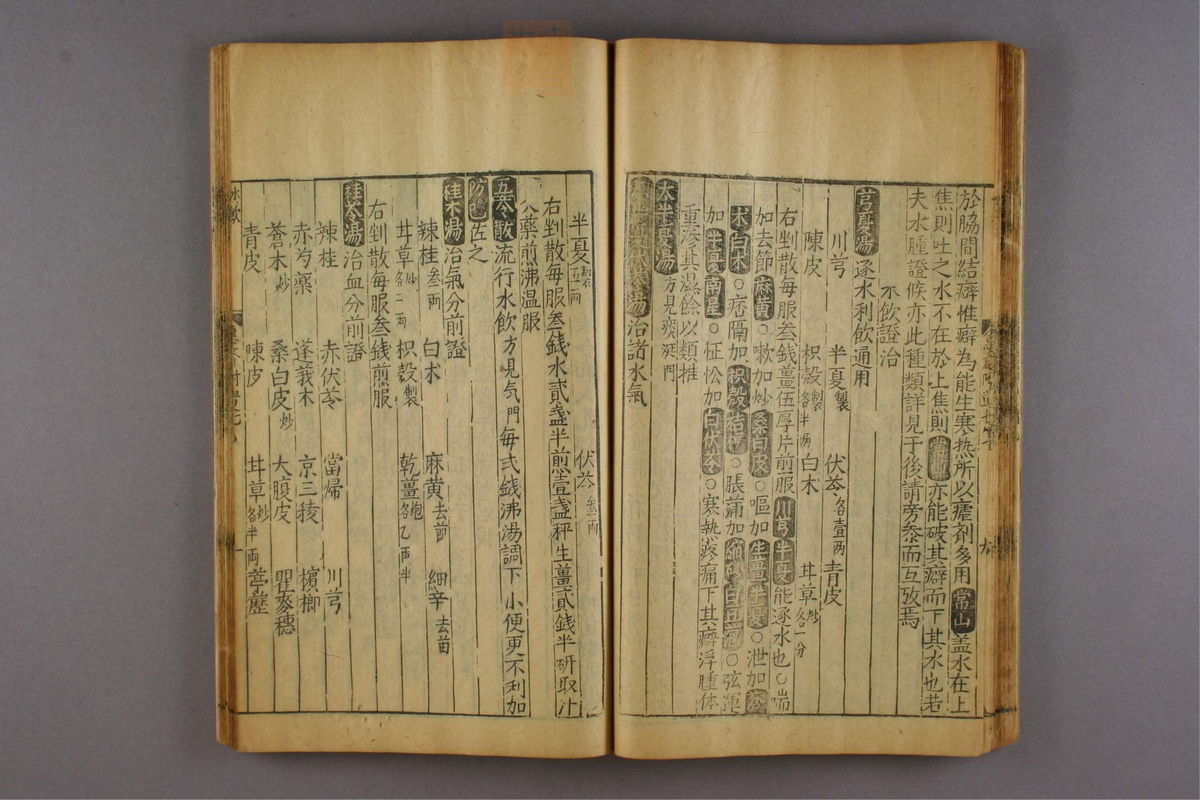 於脇間結癖惟癖為能生寒热所以瘧剤多用常山盖水在上
焦則吐之水不在於上焦則常山亦能破其癖而下其水也若
夫水腫證候亦此種類詳見于後請旁叅而互攷焉
水飲證治
芎夏湯逐水利飲通用
川芎 半夏製 伏苓各壹两 青皮
陳皮 枳殻製各半两 白术 甘草炒各一分
右剉散每服叁銭薑伍厚片煎服川芎半夏能逐水也○喘
加去節麻黄○嗽加炒桑白皮○嘔加生薑半夏○泄加苍
术白术○痞隔加枳殻桔梗○脹满加縮砂白豆冠○弦運
加半夏南星○怔忪加白伏苓○寒热疼痛下其癖浮腫体
重滲其濕餘以類推
大半夏湯方見痰涎門
小半夏伏苓湯治諸水氣
半夏製五两 伏苓叁两
右剉散每服叁銭水貳盏半煎壹盏秤生薑貳銭半研取汁
入藥煎沸温服
五苓散流行水飲方見気門每弍銭沸湯調下小便更不利加
防己佐之
桂术湯治氣分前證
辣桂叁两 白术 麻黄去節 細辛去苗
甘草炒各二两 枳殻製 乾薑炮各乙两半
右剉散每服叁銭煎服
桂苓湯治血分前證
辣桂 赤伏苓 當帰 川芎
赤芍藥 蓬莪木 京三稜 檳榔
蒼木炒 桑白皮炒 大腹皮 瞿麥穗
青皮 陳皮 甘草炒各半两 葶藶
水飲